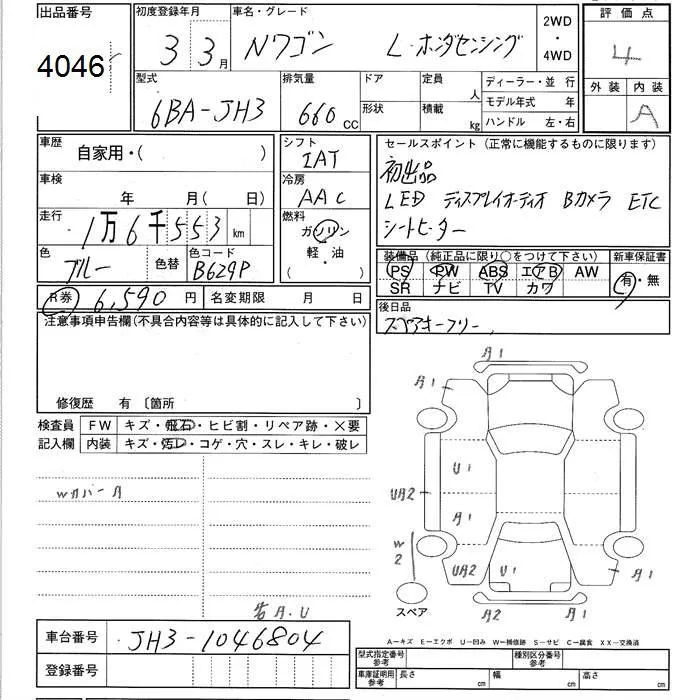 出品番号
4046
初度登録年月
3 3月
車名・グレード
Nワゴン L・ホンダセンシング
2WD
・
4WD
評価点
4
外装 内装
A
型式
6BA-JH3
排気量
660 CC
ドア
形状
定員 人
積載 kg
ディーラー・並行
モデル年式 年
ハンドル 左・右
車歴
自家用・( )
車検
年 月( 日)
走行
1万6千553 km
色
ブルー
色替
色コード
B629P
シフト
IAT
冷房
AAC
燃料
ガソリン
軽・油
( )
セールスポイント(正常に機能するものに限ります)
初出品
LED ディスプレイオーディオ Bカメラ ETC
シートヒーター
装備品(純正品に限り○をつけて下さい)
PS PW ABS エアB AW
SR ナビ TV カワ
新車保証書
有・無
R券 6,590円
名変期限 月 日
後日品
注意事項申告欄(不具合内容等は具体的に記入して下さい)
修復歴 有〔箇所 〕
検査員
記入欄
FW キズ・飛石・ヒビ割・リペア跡・×要
内装 キズ・汚レ・コゲ・穴・スレ・キレ・破レ
A1
A1
A1
U1
UA2
A1
W
2
UA2
U1
A1
スペア
A2
A1
A.U
A―キズ E―エクボ U―凹み W―補修跡 S―サビ C―腐食 XX―交換済
車台番号
JH3-1046804
登録番号
型式指定番号
参考
種別区分番号
参考
車庫証明用
参考
長さ cm
幅 cm
高さ cm